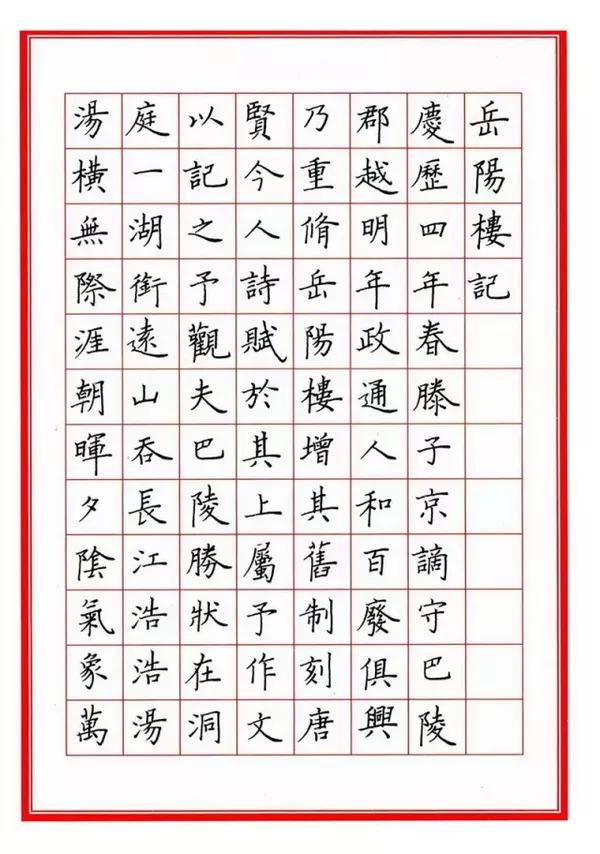 岳陽樓記
慶歷四年春滕子京謫守巴陵
郡越明年政通人和百廢俱興
乃重脩岳陽樓增其舊制刻唐
賢今人詩賦於其上屬予作文
以記之予觀夫巴陵勝狀在洞
庭一湖銜遠山吞長江浩浩湯
湯橫無際涯朝暉夕陰氣象萬